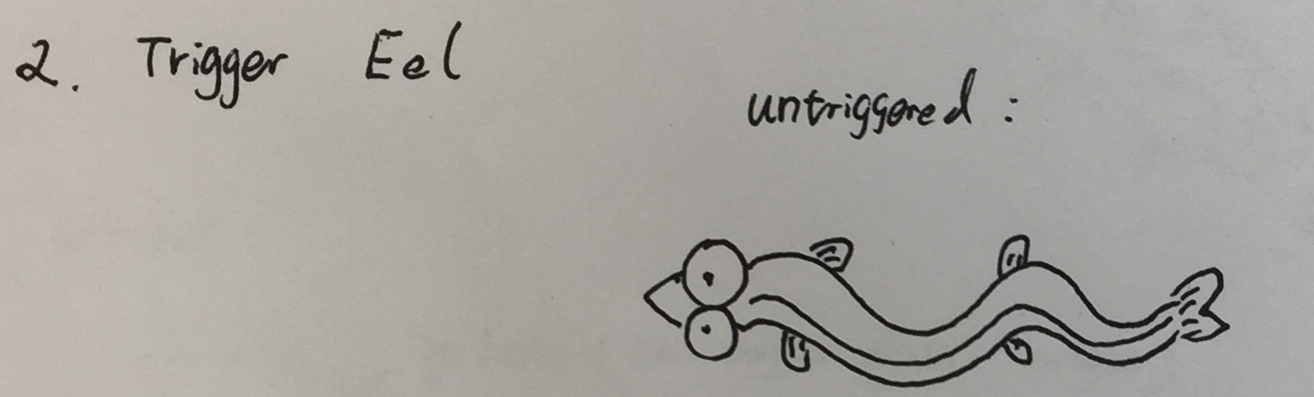 2. Trigger Eel
untriggered: